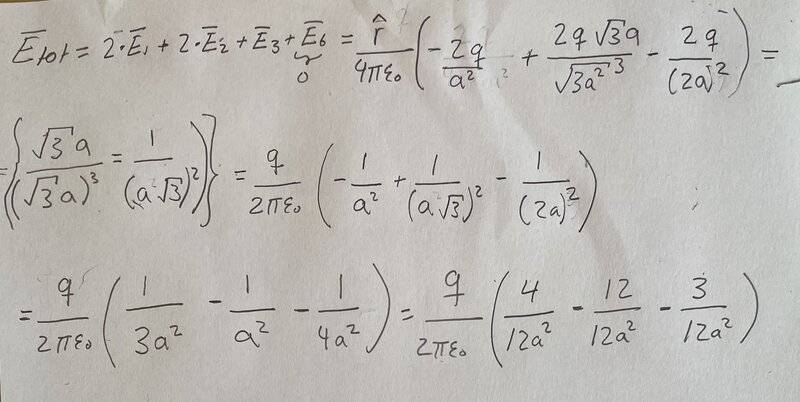 Ētot = 2·Ē₁ + 2·Ē₂ + Ē₃ + Ē₆ = r̂/(4πε₀) (-2q/a² + 2q√3a/√3a²³ - 2q/(2a)²) =
0
= {√3a/(√3a)³ = 1/(a√3)²} = q/(2πε₀) (-1/a² + 1/(a√3)² - 1/(2a)²)
= q/(2πε₀) (1/3a² - 1/a² - 1/4a²) = q/(2πε₀) (4/12a² - 12/12a² - 3/12a²)